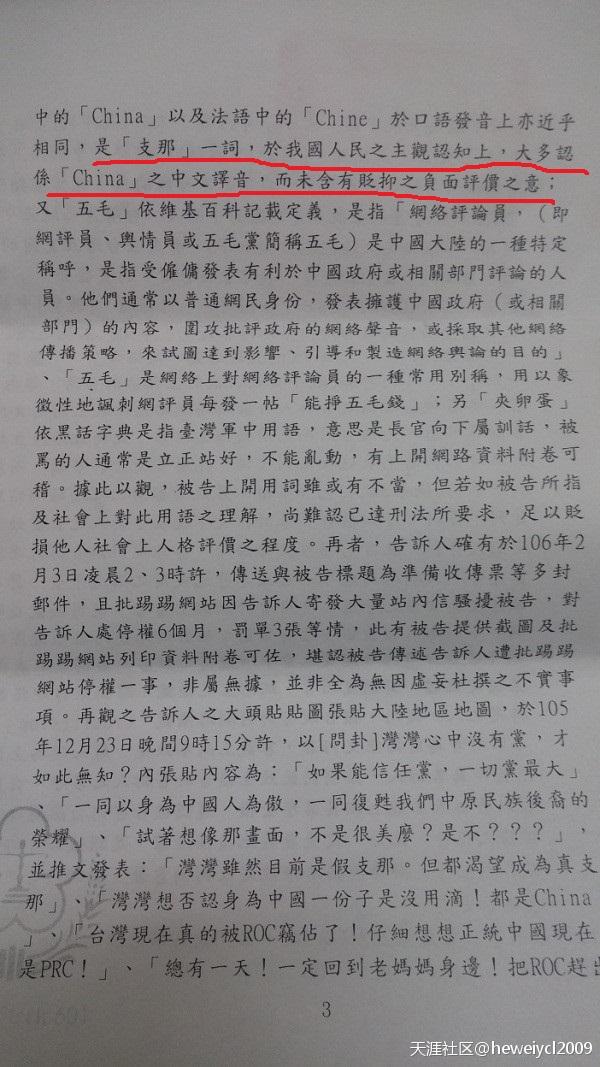 中的「China」以及法語中的「Chine」於口語發音上亦近乎
相同，是「支那」一詞，於我國人民之主觀認知上，大多認
係「China」之中文譯音，而未含有貶抑之負面評價之意；
又「五毛」依維基百科記載定義，是指「網絡評論員，（即
網評員、輿情員或五毛黨簡稱五毛）是中國大陸的一種特定
稱呼，是指受僱傭發表有利於中國政府或相關部門評論的人
員。他們通常以普通網民身份，發表擁護中國政府（或相關
部門）的內容，圍攻批評政府的網絡聲音，或採取其他網絡
傳播策略，來試圖達到影響、引導和製造網絡輿論的目的」
、「五毛」是網絡上對網絡評論員的一種常用別稱，用以象
徵性地諷刺網評員每發一帖「能掙五毛錢」；另「夾卵蛋」
依黑話字典是指臺灣軍中用語，意思是長官向下屬訓話，被
罵的人通常是立正站好，不能亂動，有上開網路資料附卷可
稽。據此以觀，被告上開用詞雖或有不當，但若如被告所指
及社會上對此用語之理解，尚難認已達刑法所要求，足以貶
損他人社會上人格評價之程度。再者，告訴人確有於106年2
月3日凌晨2、3時許，傳送與被告標題為準備收傳票等多封
郵件，且批踢踢網站因告訴人寄發大量站內信騷擾被告，對
告訴人處停權6個月，罰單3張等情，此有被告提供截圖及批
踢踢網站列印資料附卷可佐，堪認被告傳述告訴人遭批踢踢
網站停權一事，非屬無據，並非全為無因虛妄杜撰之不實事
項。再觀之告訴人之大頭貼貼圖張貼大陸地區地圖，於105
年12月23日晚間9時15分許，以[問卦]灣灣心中沒有黨，才
如此無知？內張貼內容為：「如果能信任黨，一切黨最大」
、「一同以身為中國人為傲，一同復甦我們中原民族後裔的
榮耀」、「試著想像那畫面，不是很美麼？是不？？？」，
並推文發表：「灣灣雖然目前是假支那。但都渴望成為真支
那」、「灣灣想否認身為中國一份子是沒用滴！都是China
」、「台灣現在真的被ROC竊佔了！仔細想想正統中國現在
是PRC！」、「總有一天！一定回到老媽媽身邊！把ROC趕出
3
天涯社区@heweiycl2009